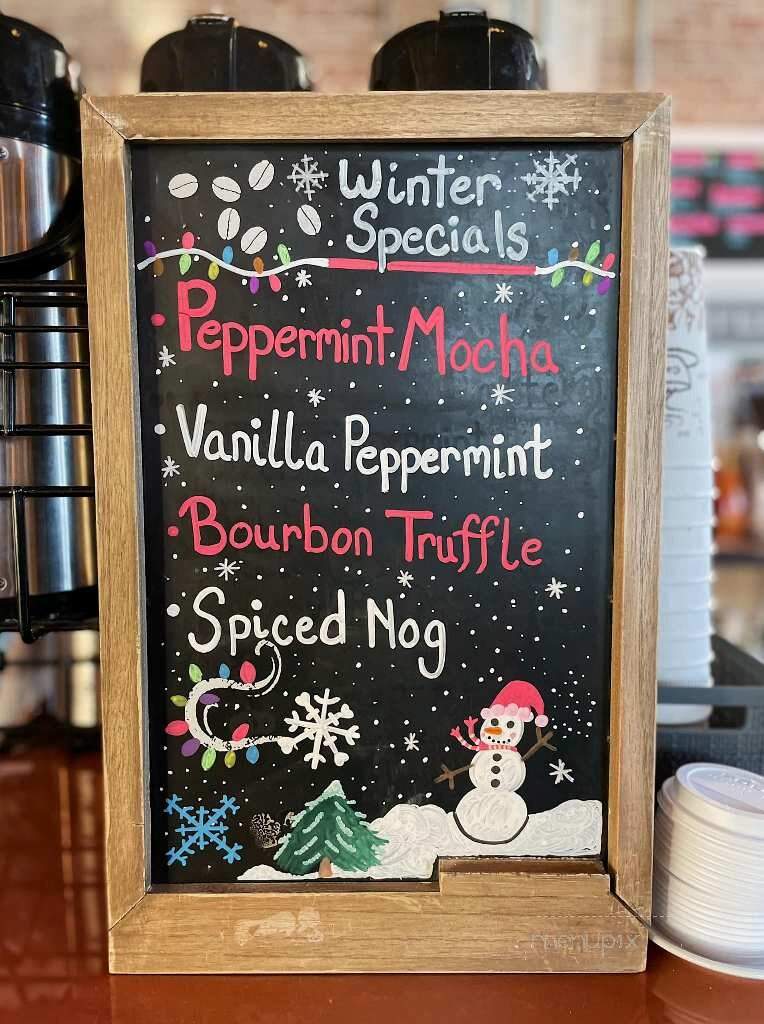 Winter
Specials
Peppermint Mocha
Vanilla Peppermint
Bourbon Truffle
Spiced Nog
menupix